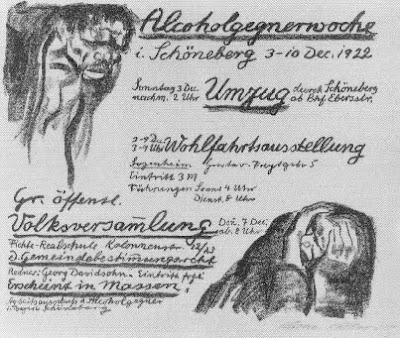 Alcoholgegnerwoche
i. Schöneberg 3-10 Dec. 1922
Sonntag 3 Dez.
nachm. 2 Uhr
Umzug
durch Schöneberg
ab Bhf. Ebersstr.
3-9 Dez.
3-9 Uhr
Wohlfahrtsausstellung
Jugendheim Gustav-Freytagstr 5
Eintritt 3 M
Führungen Sonnt 4 Uhr
Dienst. 8 Uhr
Gr. öffentl.
Volksversammlung
Don. 7 Dez.
ab. 8 Uhr
Fichte-Realschule Kolonnenstr 22/23
D. Gemeindebestimmungsrecht
Redner: Georg Davidsohn - Eintritt frei
Erscheint in Massen!
Arbeitsausschuss d. Alcoholgegner
Schöneberg